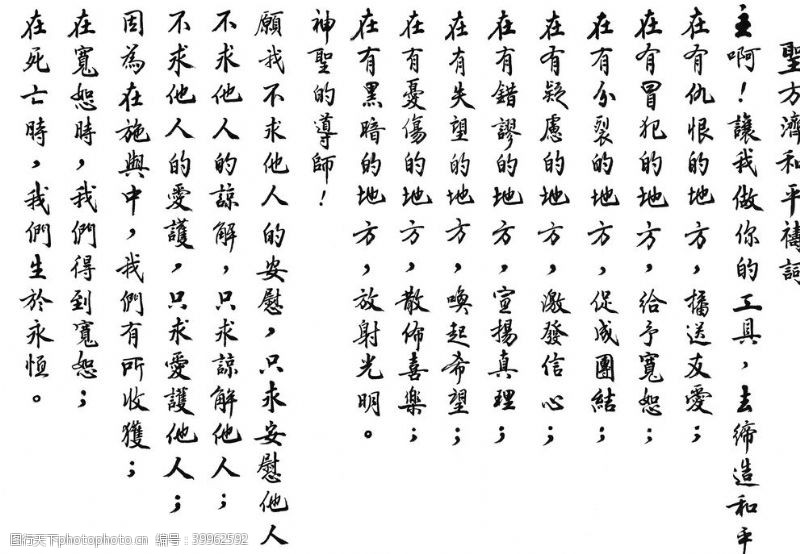 聖方濟和平禱詞
主啊！讓我做你的工具，去締造和平
在有仇恨的地方，播送友愛；
在有冒犯的地方，給予寬恕；
在有分裂的地方，促成團結；
在有疑慮的地方，激發信心；
在有錯謬的地方，宣揚真理；
在有失望的地方，喚起希望；
在有憂傷的地方，散佈喜樂；
在有黑暗的地方，放射光明。
神聖的導師！
願我不求他人的安慰，只求安慰他人
不求他人的諒解，只求諒解他人；
不求他人的愛護，只求愛護他人；
因為在施與中，我們有所收獲；
在寬恕時，我們得到寬恕；
在死亡時，我們生於永恒。
图行天下photophoto.cn 编号：39962592